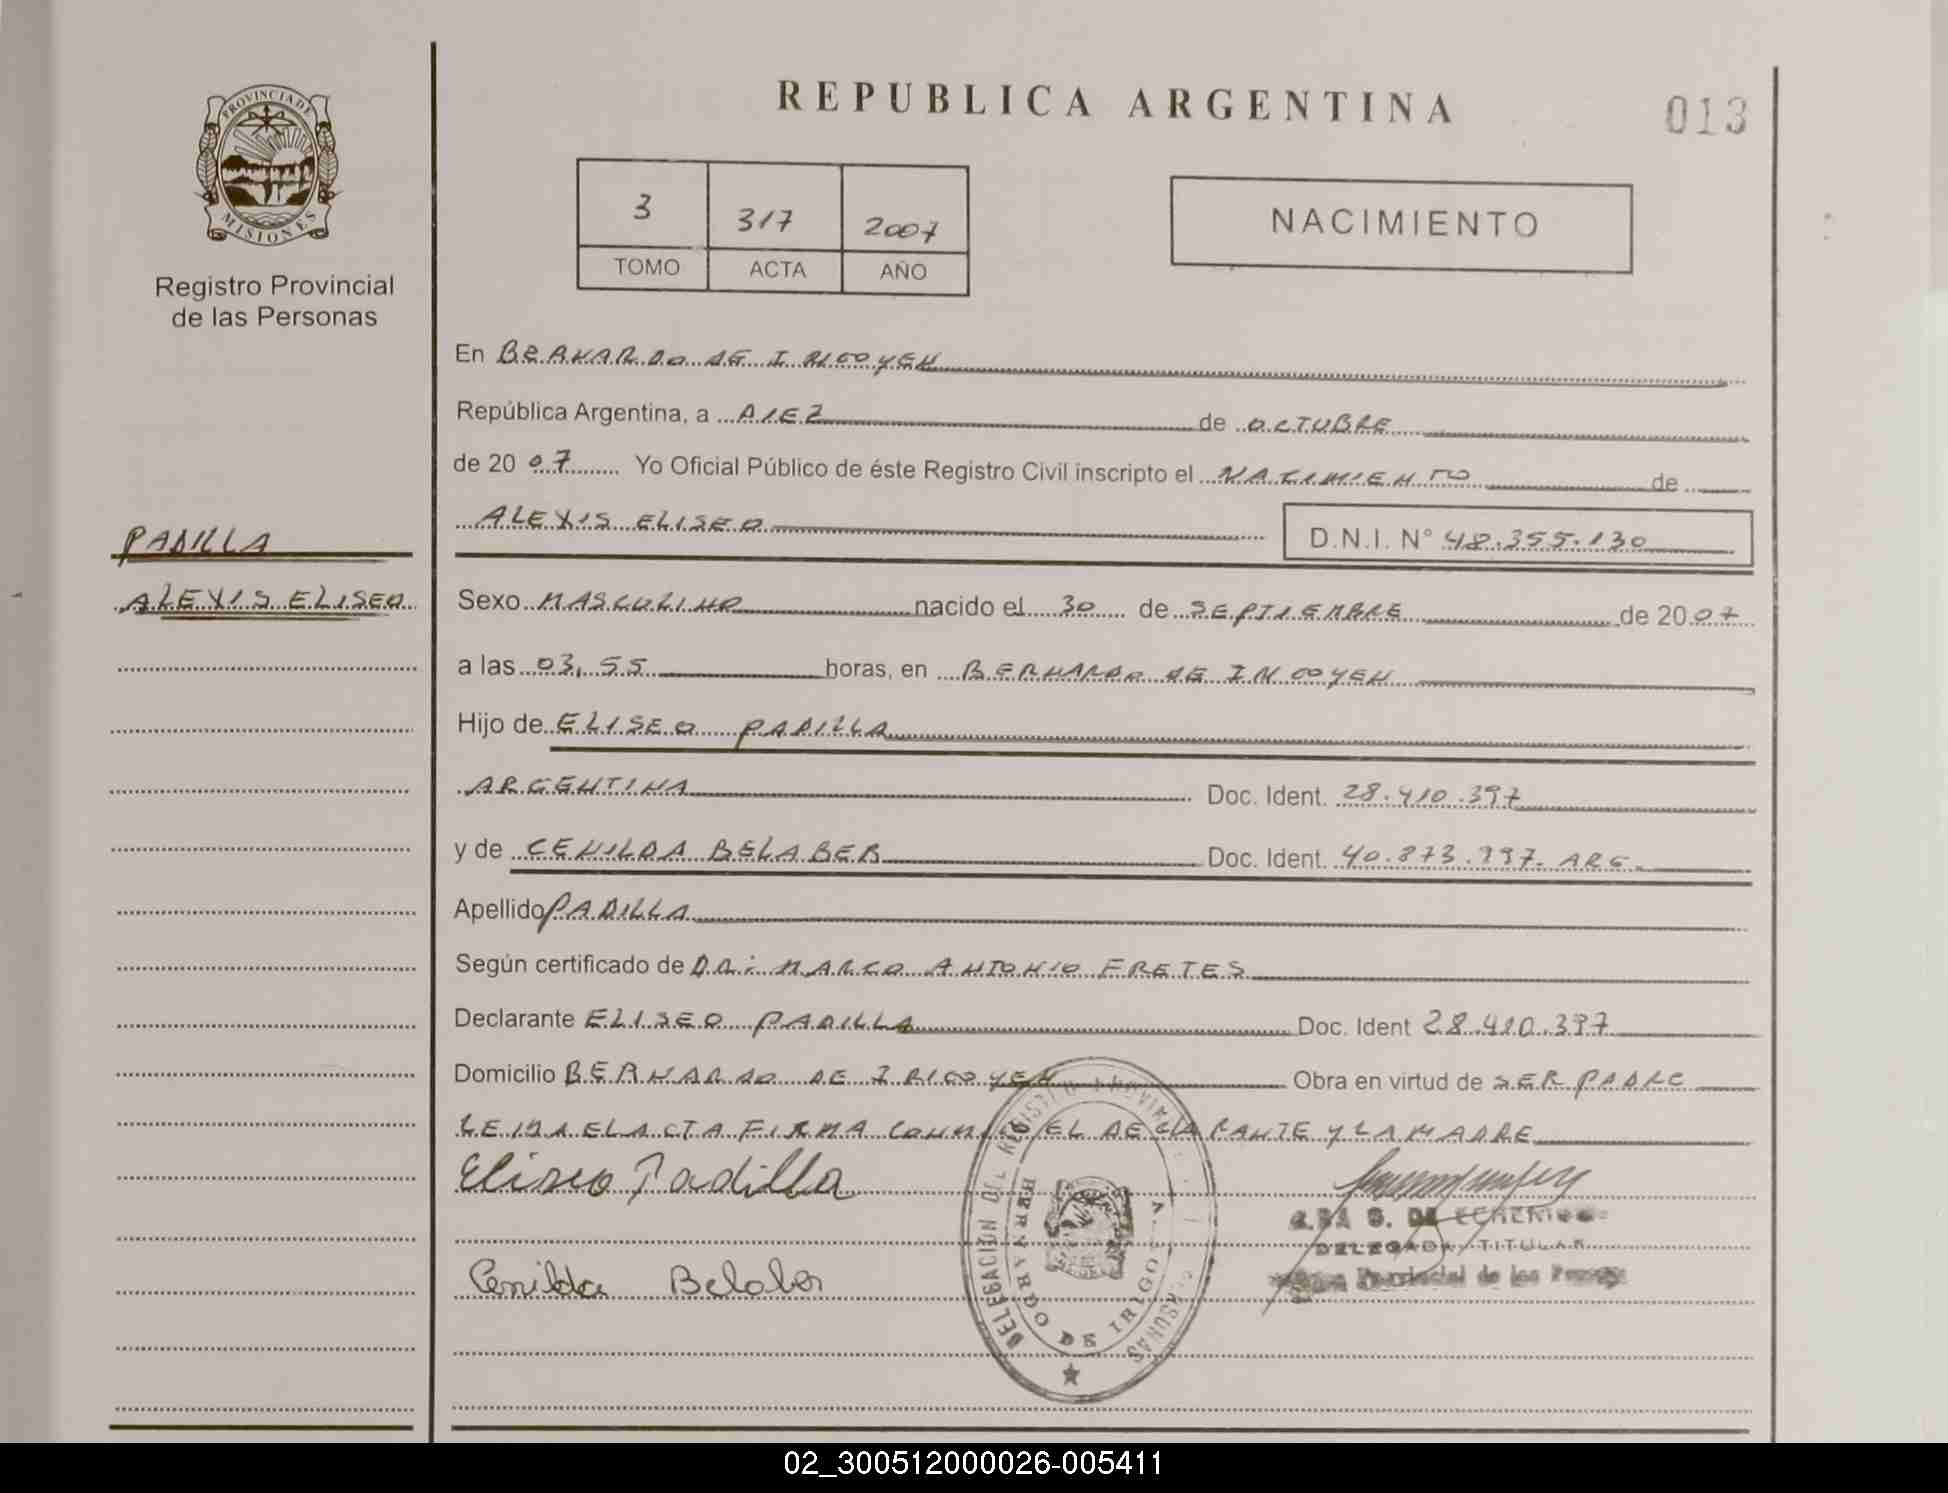 REPUBLICA ARGENTINA
013
PROVINCIA DE
MISIONES
Registro Provincial
de las Personas
3 317 2007
TOMO ACTA AÑO
NACIMIENTO
En BERNARDO DE IRIGOYEN
República Argentina, a DIEZ de OCTUBRE
de 20 07 Yo Oficial Público de éste Registro Civil inscripto el NACIMIENTO de
ALEXIS ELISEO D.N.I. N° 48.355.130
PADILLA
ALEXIS ELISEO
Sexo MASCULINO nacido el 30 de SEPTIEMBRE de 20 07
a las 03,55 horas, en BERNARDO DE IRIGOYEN
Hijo de ELISEO PADILLA
ARGENTINA Doc. Ident. 28.410.397
y de CENILDA BELABER Doc. Ident. 40.873.997. ARG.
Apellido PADILLA
Según certificado de DR: MARCO ANTONIO FRETES
Declarante ELISEO PADILLA Doc. Ident 28.410.397
Domicilio BERNARDO DE IRIGOYEN Obra en virtud de SER PADRE
LEIDA EL ACTA FIRMA CONMIGO EL DECLARANTE Y LA MADRE
Eliseo Padilla
Cenilda Belaber
DELEGACION DEL REGISTRO PROVINCIAL
BERNARDO DE IRIGOYEN
S. DE
DELEGADA TITULAR
Provincial de las Personas
02_300512000026-005411